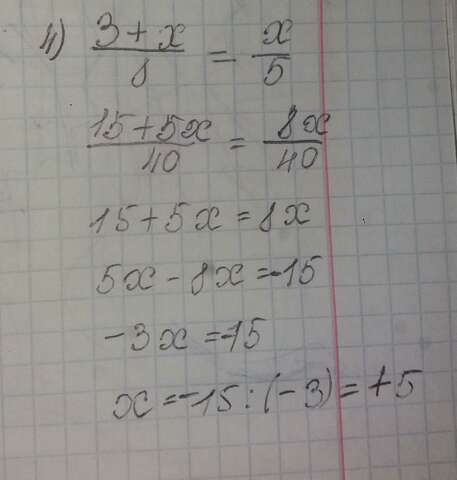 4) (3+x)/8 = x/5
(15+5x)/40 = 8x/40
15+5x=8x
5x-8x=-15
-3x=-15
x=-15:(-3)=+5